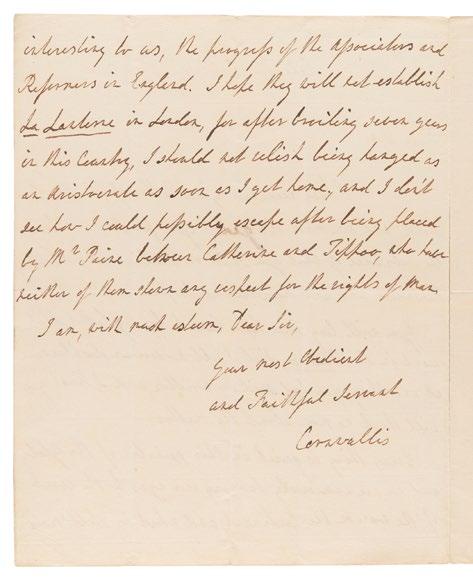 interesting to us, the progress of the Associators and
Reformers in England. I hope they will not establish
La Lanterne in London, for after broiling seven years
in this Country, I should not relish being hanged as
an Aristocrate as soon as I get home, and I don't
see how I could possibly escape after being placed
by Mr Paine between Catherine and Tippoo, who have
neither of them shewn any respect for the rights of Man
I am, with much esteem, Dear Sir,
Your most Obedient
and Faithful Servant
Cornwallis